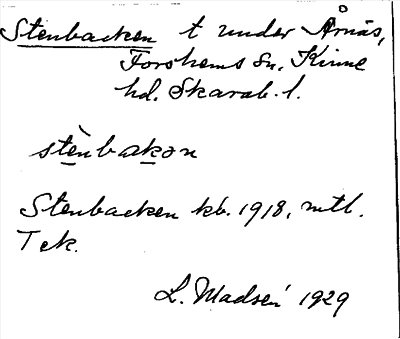 Stenbacken t under Årnäs,
Forshems sn. Kinne
hd. Skarab. l.
stènbakən
Stenbacken kb. 1918, mtl.
T ek.
L. Madsén 1929